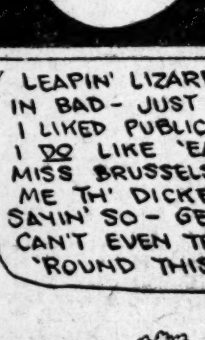 LEAPIN' LIZAR
IN BAD - JUST
I LIKED PUBLIC
I DO LIKE 'EA
MISS BRUSSELS
ME TH' DICKE
SAYIN' SO - GE
CAN'T EVEN T
'ROUND THIS